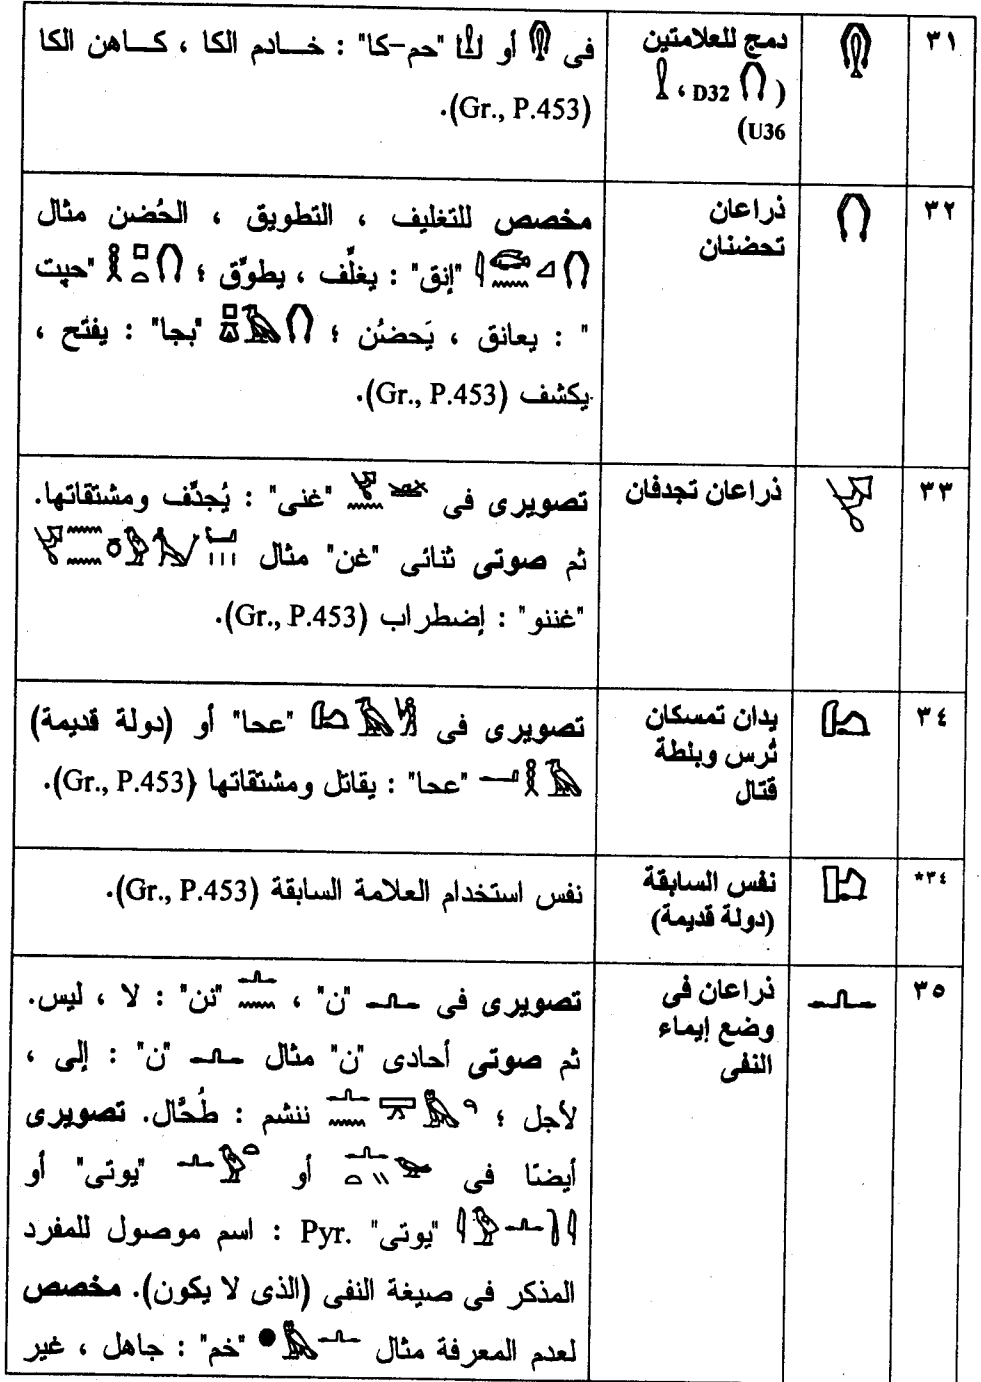 ٣١
دمج للعلامتين
( 𓂓 D32 ، 𓍛
U36)
فى 𓂔 أو 𓂓𓍛 "حم-كا" : خـــادم الكا ، كـــاهن الكا
(Gr., P.453).
٣٢
ذراعان
تحضنان
مخصص للتغليف ، التطويق ، الحُضن مثال
"إنق" : يغلِّف ، يطوِّق ؛ "حپت
" : يعانق ، يَحضُن ؛ "بجا" : يفتح ،
يكشف (Gr., P.453).
٣٣
ذراعان تجدفان
تصويرى فى "غنى" : يُجدِّف ومشتقاتها.
ثم صوتى ثنائى "غن" مثال
"غننو" : إضطراب (Gr., P.453).
٣٤
يدان تمسكان
تُرس وبلطة
قتال
تصويرى فى "عحا" أو (دولة قديمة)
"عحا" : يقاتل ومشتقاتها (Gr., P.453).
٣٤*
نفس السابقة
(دولة قديمة)
نفس استخدام العلامة السابقة (Gr., P.453).
٣٥
ذراعان فى
وضع إيماء
النفى
تصويرى فى 𓂜 "ن" ، 𓂜𓈖 "نن" : لا ، ليس.
ثم صوتى أحادى "ن" مثال 𓂜 "ن" : إلى ،
لأجل ؛ ننشم : طُحَّال. تصويرى
أيضًا فى أو "يوتى" أو
"يوتى" Pyr. : اسم موصول للمفرد
المذكر فى صيغة النفى (الذى لا يكون). مخصص
لعدم المعرفة مثال "خم" : جاهل ، غير